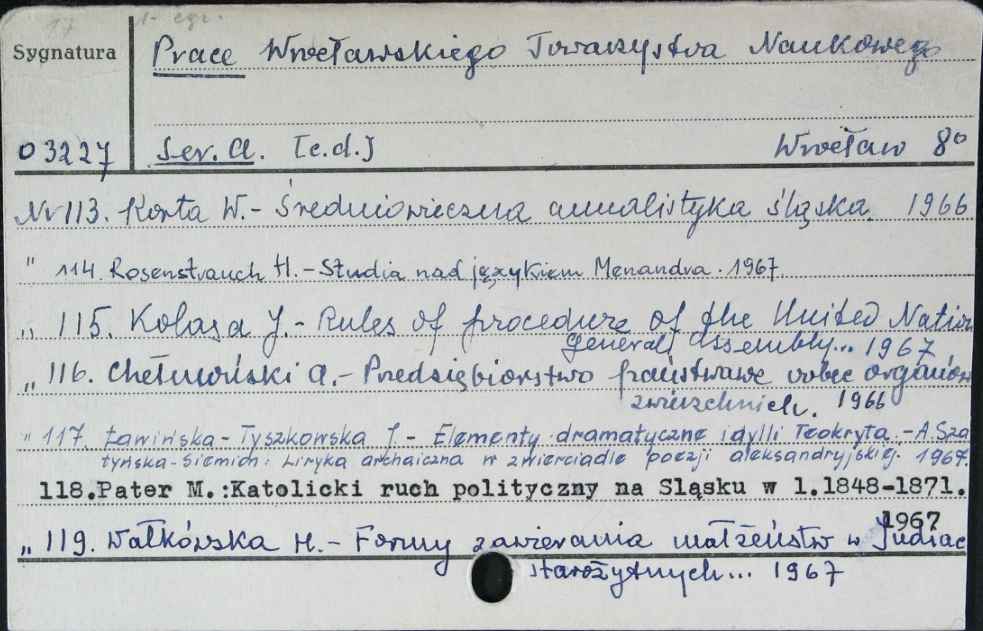 17 1- egz.
Sygnatura Prace Wrocławskiego Towarzystwa Naukowego
03227 Ser. A. [c.d.] Wrocław 8°
Nr 113. Korta W. - Średniowieczna annalistyka śląska. 1966
" 114. Rosenstrauch H. - Studia nad językiem Menandra. 1967
" 115. Kolasa J. - Rules of procedure of the United Nation
General Assembly... 1967
" 116. Chełmoński A. - Przedsiębiorstwo państwowe wobec organów
zwierzchnich. 1966
" 117. Ławińska-Tyszkowska J. - Elementy dramatyczne idylli Teokryta. - A. Sza
tyńska-Siemion: Liryka archaiczna w zwierciadle poezji aleksandryjskiej. 1967.
118. Pater M.: Katolicki ruch polityczny na Śląsku w l. 1848-1871.
1967
" 119. Wałkówska H. - Formy zawierania małżeństw w Indiac
starożytnych... 1967